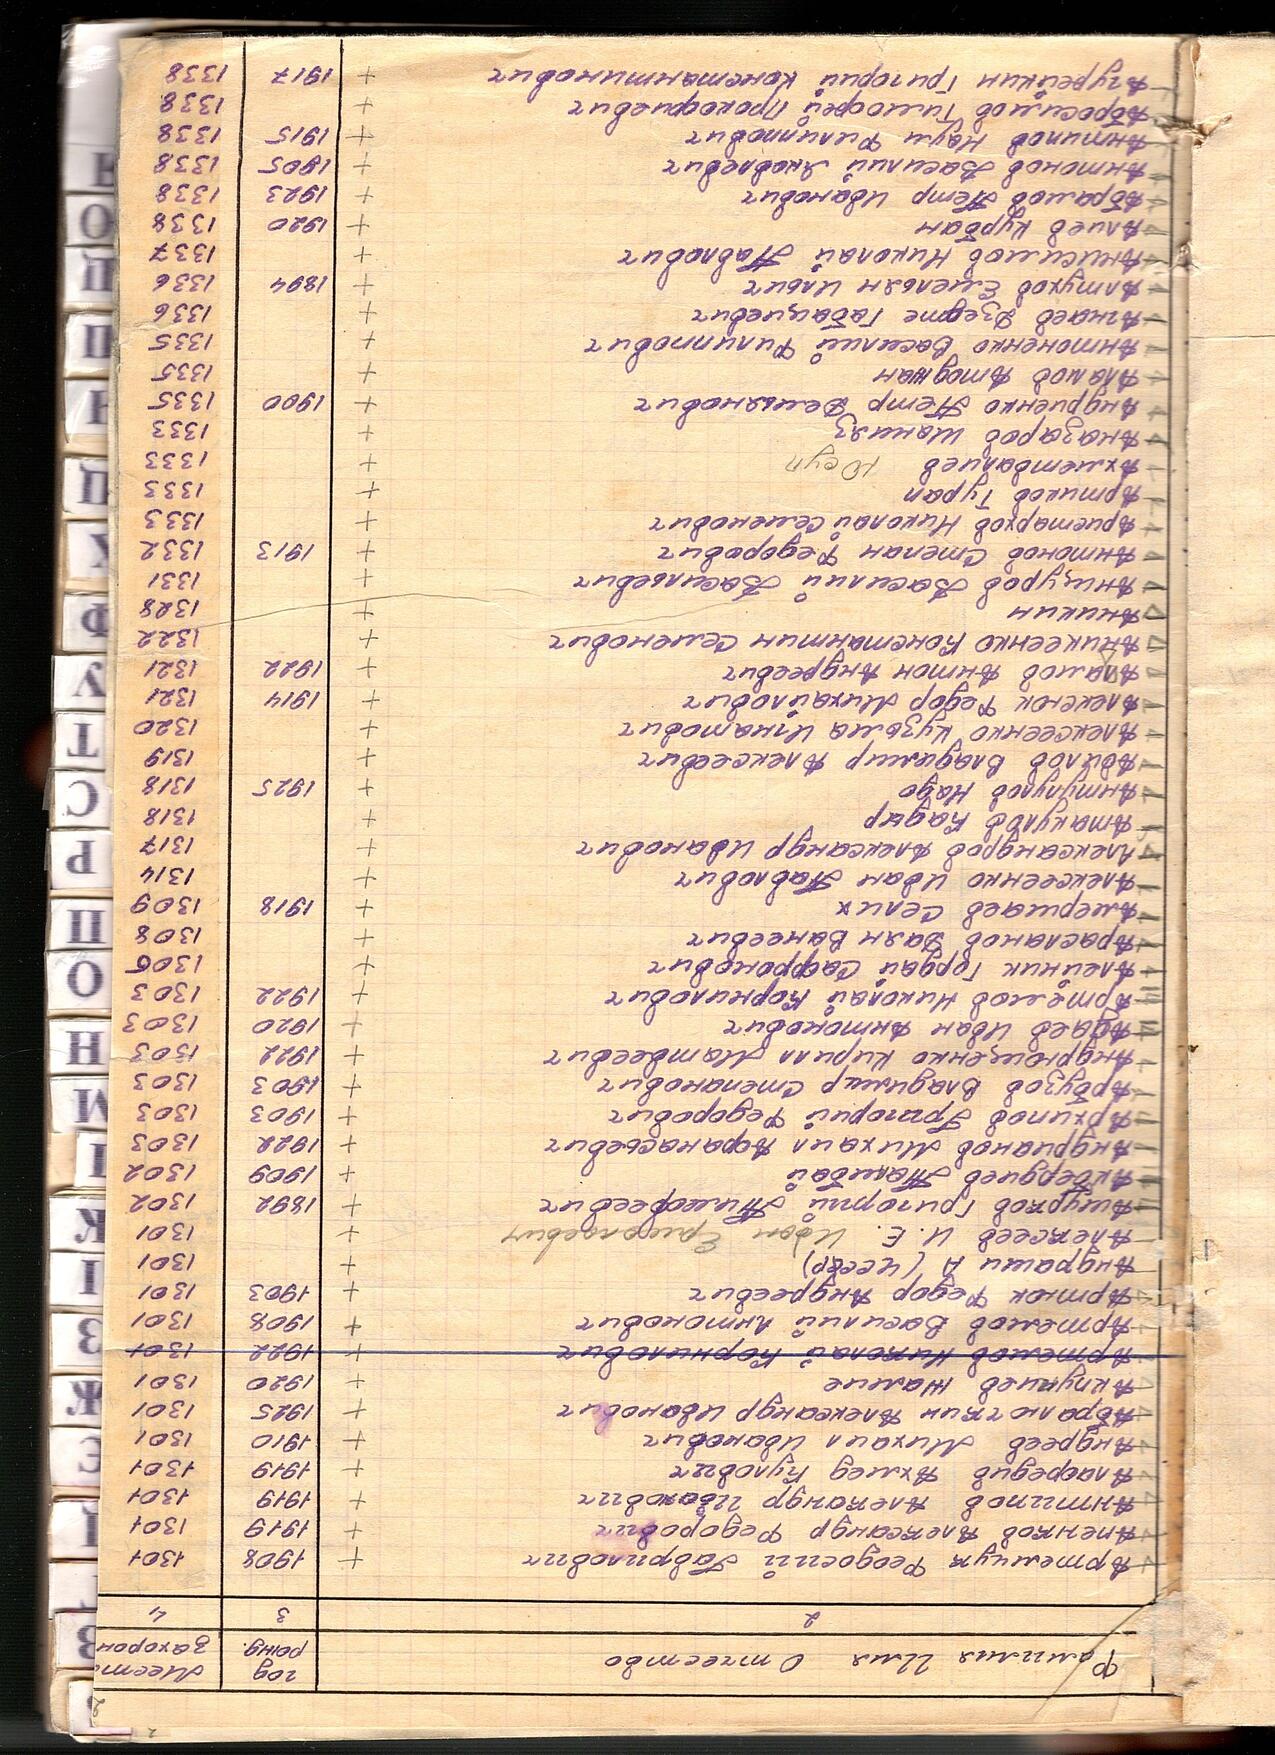 Фамилия Имя Отчество год рожд. Место захорон
2 3 4
Артемчук Феодосий Гаврилович + 1908 1301
Апенков Александр Федорович + 1919 1301
Антипов Александр Иванович + 1919 1301
Ахмед + 1919 1301
Андреев Михаил Иванович + 1910 1301
Абралюткин Александр Иванович + 1925 1301
+ 1920 1301
Артемов Николай Корнилович + 1922 1301
Артемов Василий Антонович + 1908 1301
Артюк Федор Андреевич + 1903 1301
Андраши А (чссвр) + 1301
Алексеев И. Е. Иван + 1301
Ашурков Григорий Тимофеевич + 1892 1302
Акбердиев + 1909 1302
Андрианов Михаил Афанасьевич + 1922 1303
Архипов Григорий Федорович + 1903 1303
Арбузов Владимир Степанович + 1903 1303
Андрющенко Кирилл Матвеевич + 1922 1303
Иван Антонович + 1920 1303
Артёмов Николай Корнилович + 1922 1303
Алейник Гордай Сафронович + 1306
Арасланов Заян Ванеевич + 1308
Амершаев Селих + 1918 1309
Алексеенко Иван Павлович + 1314
Александров Александр Иванович + 1317
Атакулов Кадыр + 1318
Антулулов Надо + 1925 1318
Авилов Владимир Алексеевич + 1319
Алексеенко Кузьма Игнатович + 1320
Алексенюк Федор Михайлович + 1914 1321
Антон Андреевич + 1922 1321
Аникеенко Константин Семенович + 1322
Аникин + 1328
Анцуров Василий Васильевич + 1331
Антонов Степан Федорович + 1913 1332
Аристархов Николай Семенович + 1333
Артиков Турап + 1333
Ахметвалиев Юсуп + 1333
Аназаров Шанияз + 1333
Андриенко Петр Демьянович + 1900 1335
Аламов Атоджан + 1335
Антоненко Василий Филиппович + 1335
Агнаев Дзедте Габациевич + 1336
Алтухов Емельян Ильич + 1894 1336
Анисимов Николай Павлович + 1337
Алиев Курбан + 1920 1338
Абрамов Петр Иванович + 1923 1338
Антонов Василий Яковлевич + 1905 1338
Антипов Наум Филиппович + 1915 1338
Абросимов Тимофей Прокофиевич + 1338
Агурейкин Григорий Константинович + 1917 1338
З
И
К
М
Н
О
П
Р
С
Т
У
Ф
Х